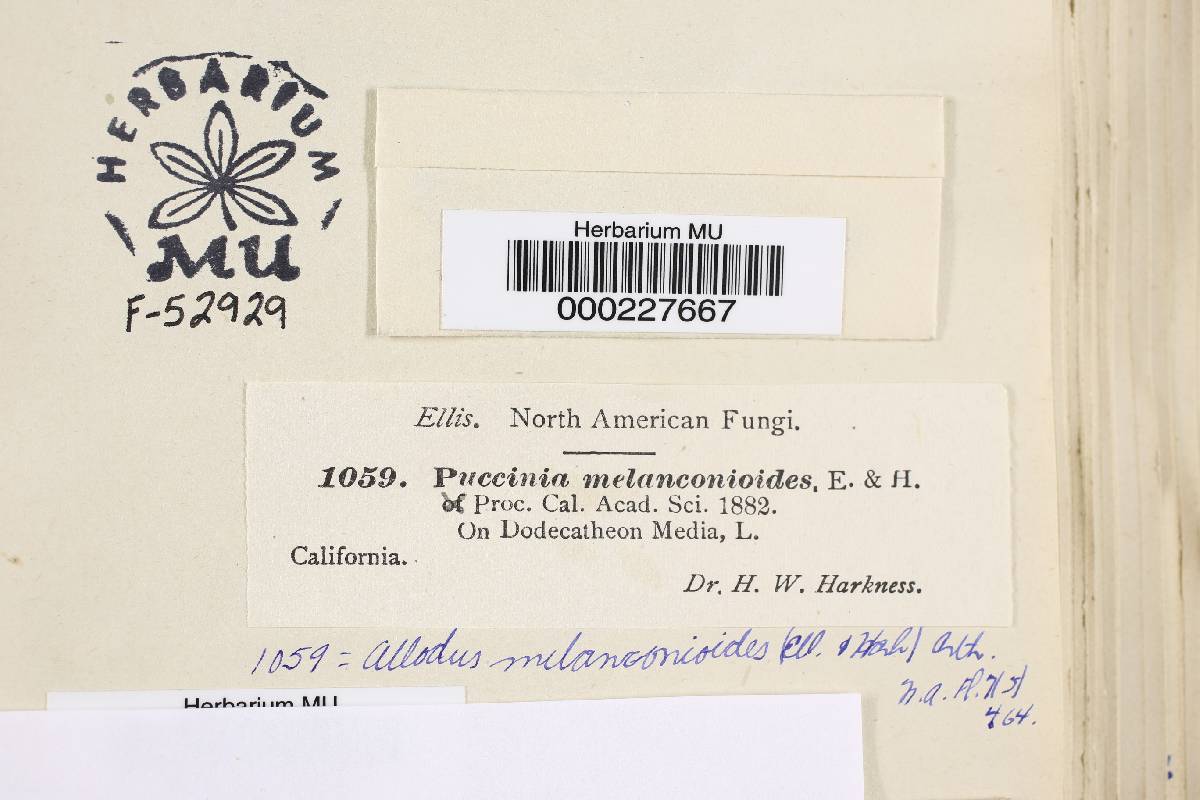 HERBARIUM
MU
F-52929
Herbarium MU
000227667
Ellis. North American Fungi.
1059. Puccinia melanconioides, E. & H.
of Proc. Cal. Acad. Sci. 1882.
On Dodecatheon Media, L.
California.
Dr. H. W. Harkness.
1059 = Allodus melanconioides (Ell. & Hark) Arth.
N.A. Fl. 7(5)
464.
Herbarium MU